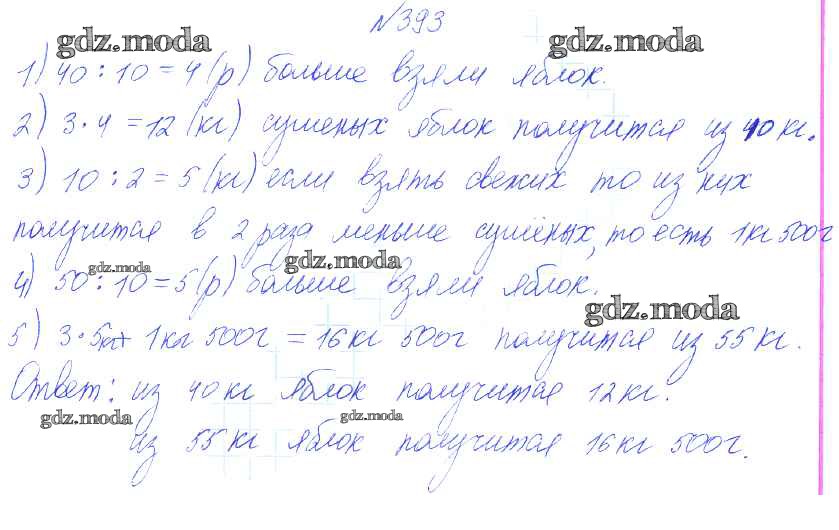 №393
gdz.moda gdz.moda
1) 40 : 10 = 4 (р) больше взяли яблок.
2) 3 · 4 = 12 (кг) сушеных яблок получится из 40 кг.
3) 10 : 2 = 5 (кг) если взять свежих то из них
получится в 2 раза меньше сушёных, то есть 1кг 500г
gdz.moda gdz.moda
4) 50 : 10 = 5 (р) больше взяли яблок.
gdz.moda
5) 3 · 5кг+ 1кг 500г = 16кг 500г получится из 55 кг.
Ответ: из 40кг яблок получится 12кг.
gdz.moda gdz.moda
из 55кг яблок получится 16кг 500г.